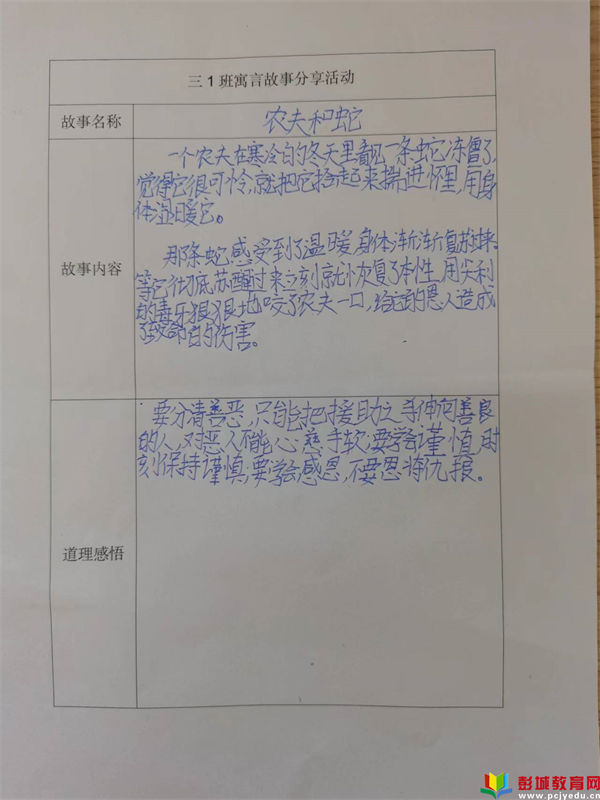 三1班寓言故事分享活动
故事名称
农夫和蛇
故事内容
一个农夫在寒冷的冬天里看见一条蛇冻僵了,
觉得它很可怜,就把它拾起来揣进怀里,用身
体温暖它。
那条蛇感受到了温暖,身体渐渐复苏
等它彻底苏醒过来立刻就恢复了本性,用尖利
的毒牙狠狠地咬了农夫一口,给它的恩人造成
了致命的伤害。
道理感悟
要分清善恶,只能把援助之手伸向善良
的人,对恶人不能心慈手软;要学会谨慎,时
刻保持谨慎;要学会感恩,不要恩将仇报。
彭城教育网
www.pcjyedu.cn